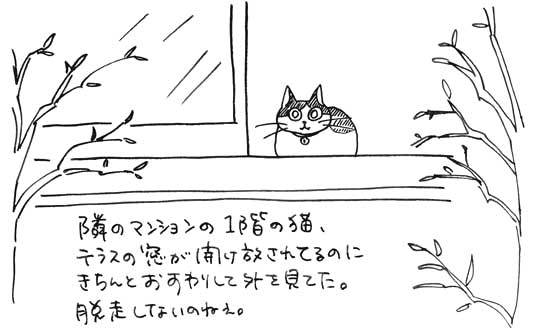 隣のマンションの1階の猫、
テラスの窓が開け放されてるのに
きちんとおすわりして外を見てた。
脱走しないのねぇ。